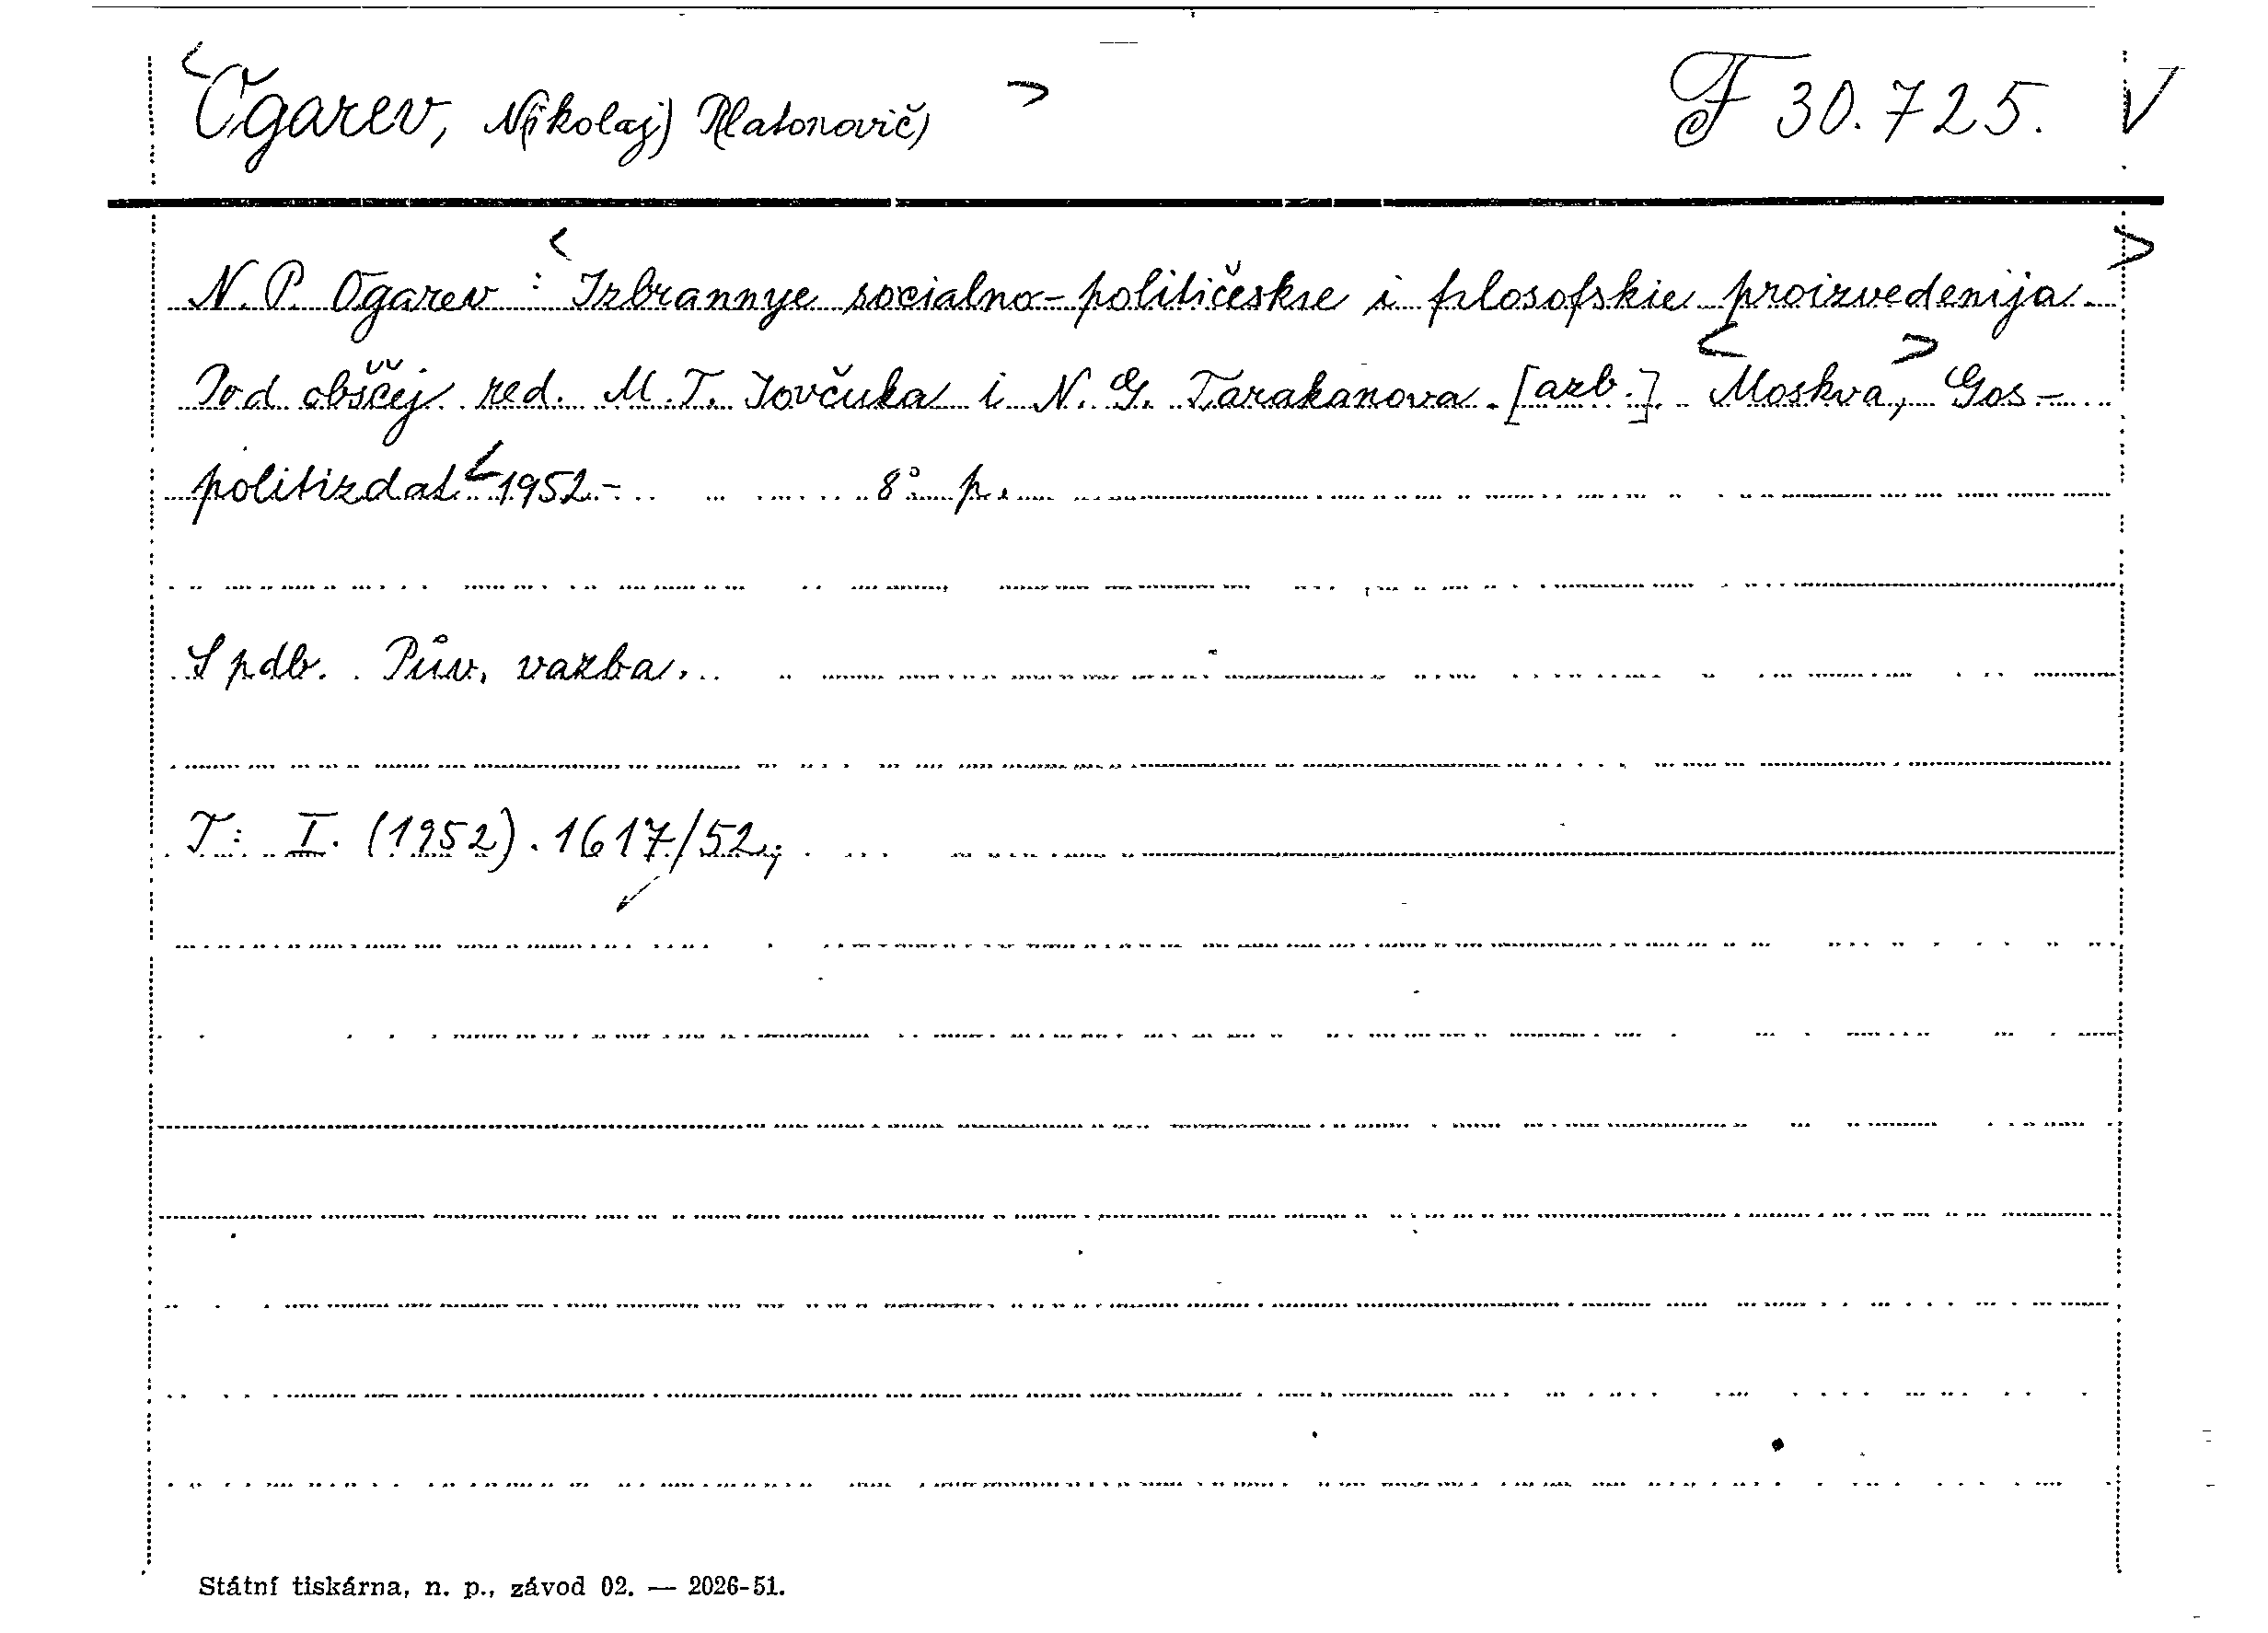 <Ogarev, N(ikolaj) P(latonovič)> F 30.725. V
N. P. Ogarev : <Izbrannye socialno-političeskie i filosofskie proizvedenija.>
Pod obščej red. M. T. Jovčuka i N. G. Tarakanova. [azb.] <Moskva,> Gos-
politizdat <1952.- 8° p.
S pdb. Pův. vazba.
T: I. (1952). 1617/52;
Státní tiskárna, n. p., závod 02. — 2026-51.